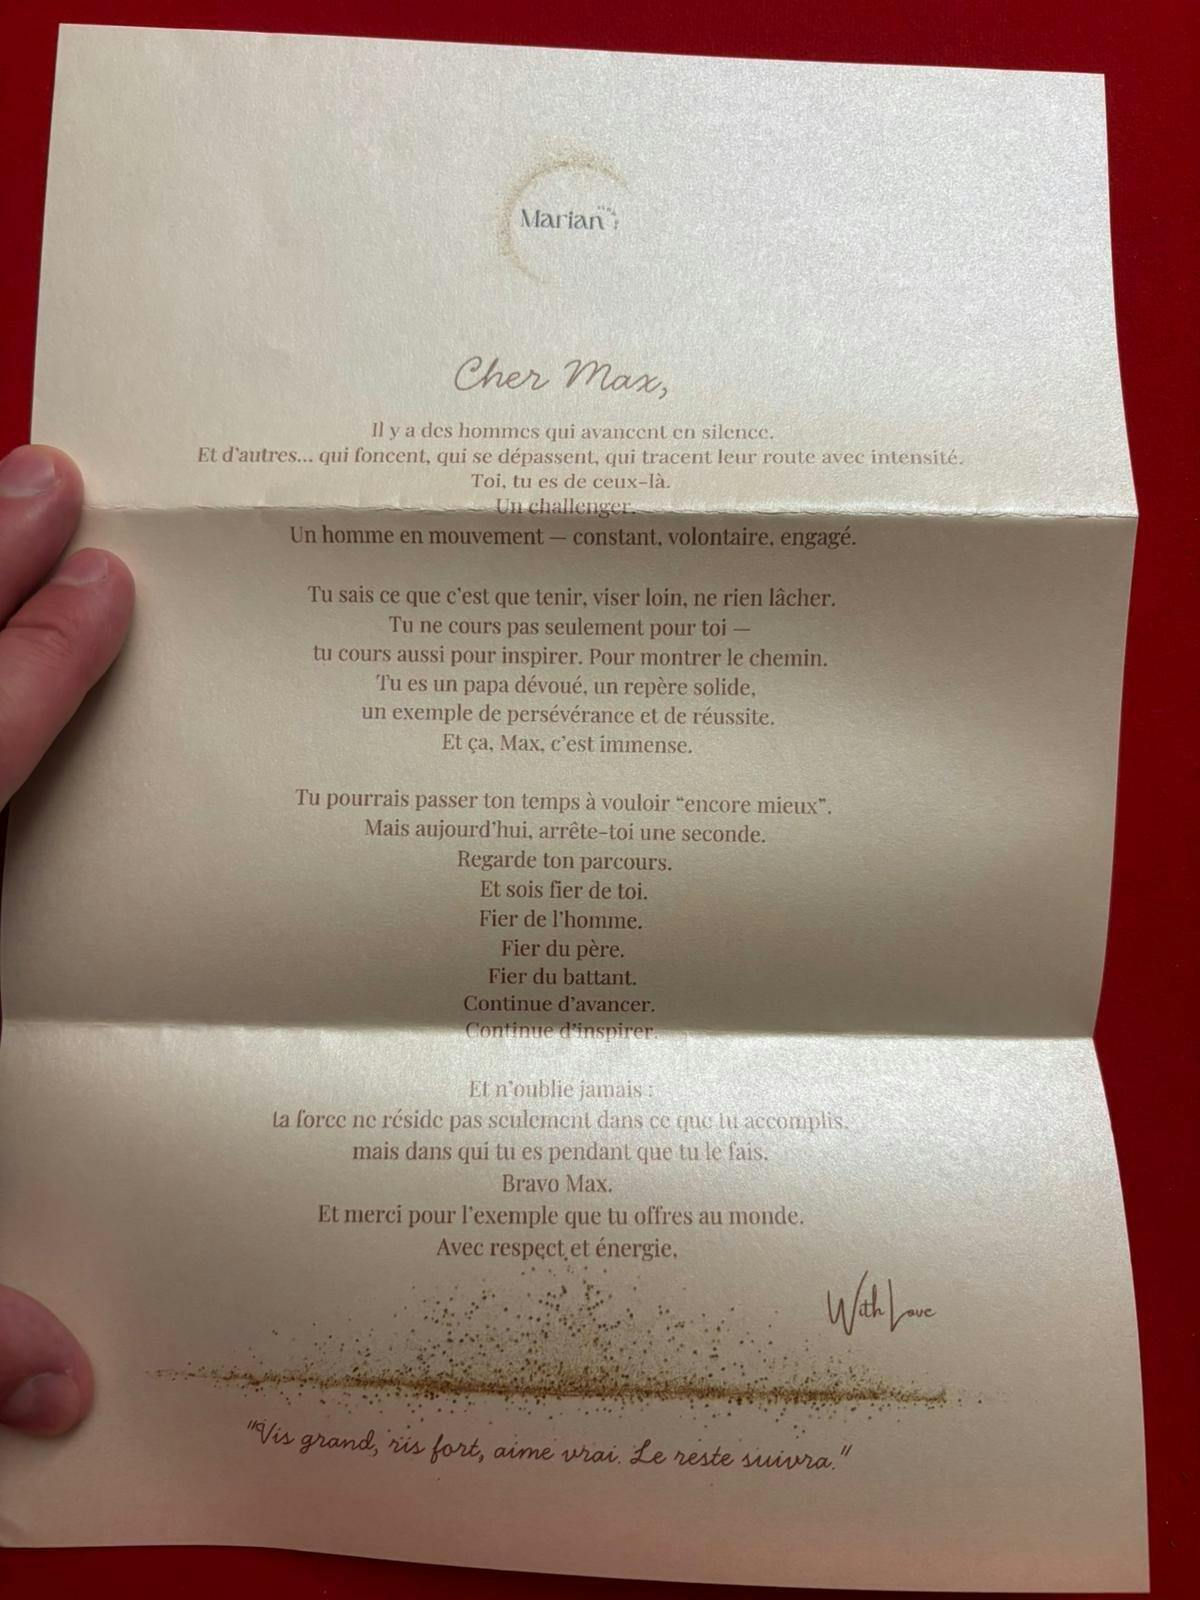 Marian
Cher Max,
Il y a des hommes qui avancent en silence.
Et d'autres... qui foncent, qui se dépassent, qui tracent leur route avec intensité.
Toi, tu es de ceux-là.
Un challenger.
Un homme en mouvement — constant, volontaire, engagé.
Tu sais ce que c'est que tenir, viser loin, ne rien lâcher.
Tu ne cours pas seulement pour toi —
tu cours aussi pour inspirer. Pour montrer le chemin.
Tu es un papa dévoué, un repère solide,
un exemple de persévérance et de réussite.
Et ça, Max, c'est immense.
Tu pourrais passer ton temps à vouloir “encore mieux”.
Mais aujourd'hui, arrête-toi une seconde.
Regarde ton parcours.
Et sois fier de toi.
Fier de l'homme.
Fier du père.
Fier du battant.
Continue d'avancer.
Continue d'inspirer.
Et n'oublie jamais :
ta force ne réside pas seulement dans ce que tu accomplis,
mais dans qui tu es pendant que tu le fais.
Bravo Max.
Et merci pour l'exemple que tu offres au monde.
Avec respect et énergie,
With Love
"Vis grand, ris fort, aime vrai. Le reste suivra."